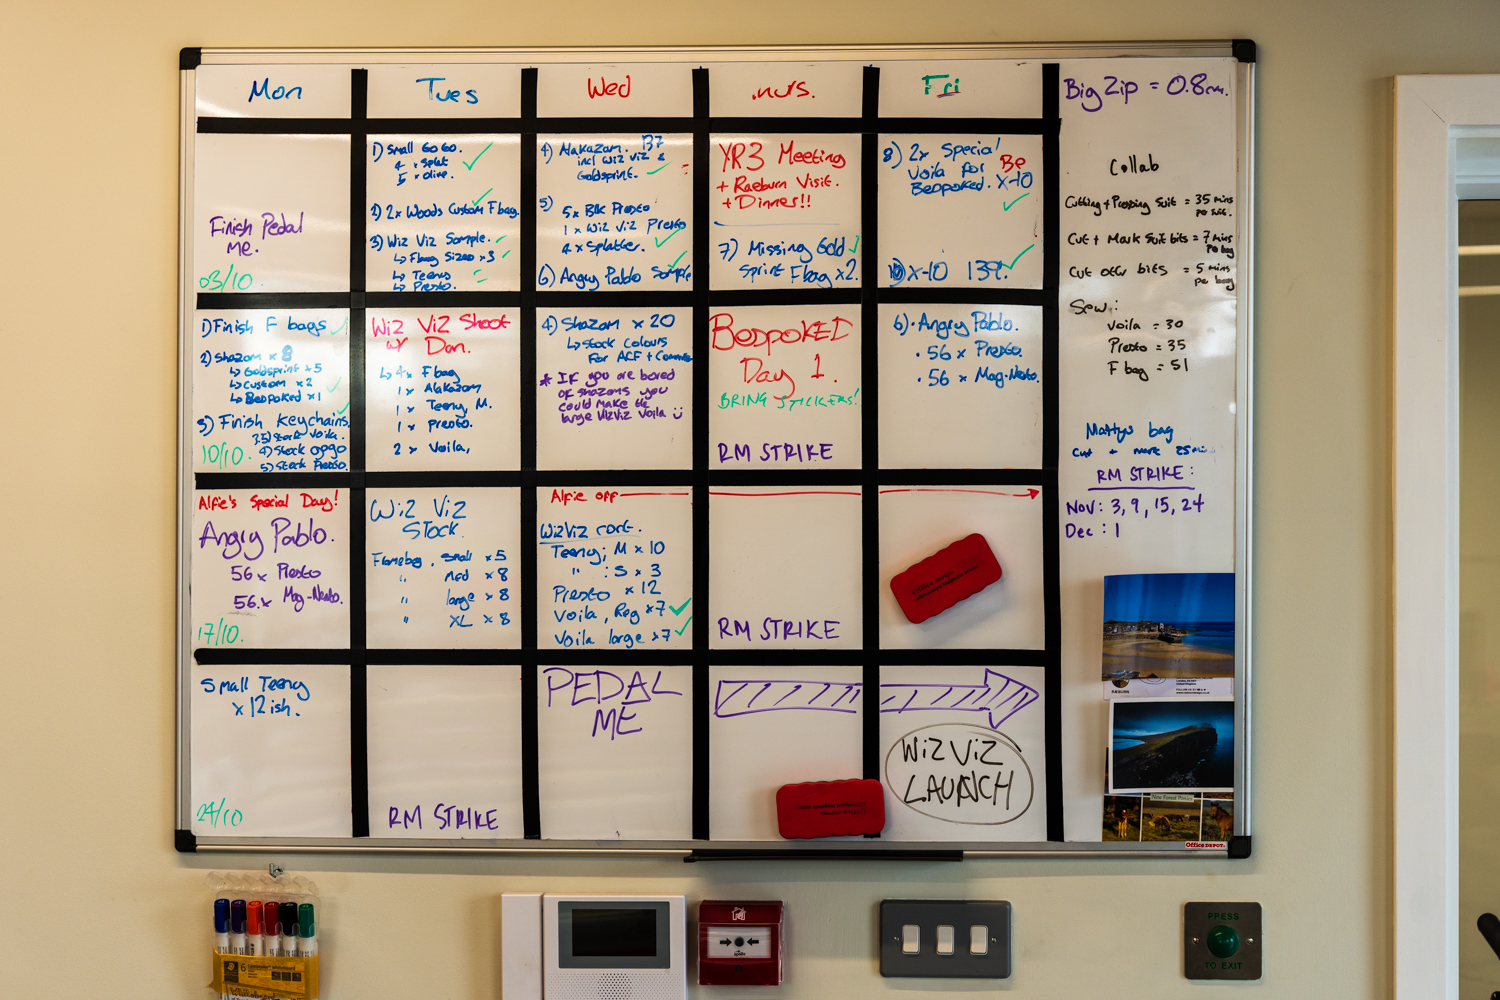 Mon
Tues
Wed
.hurs.
Fri
Big Zip = 0.8m.
Finish Pedal
Me.
03/10.
1) Small GoGo.
4 x Splat
5 x Olive.
2) 2x Woods Custom F bag.
3) Wiz Viz Sample.
↳ F bag Sizes x 3
↳ Teeny
↳ Presto.
4) Alakazam. 137
incl Wiz Viz &
Goldsprint.
5)
5 x Blk Presto
1 x Wiz Viz Presto
4 x Splatter.
6) Angry Pablo Sample
YR3 Meeting
+ Raeburn Visit.
+ Dinner!!
7) Missing Gold
Sprint F bag x2.
8) 2x Special
Voila for Be
Bedpoked. X-10
10) X-10 139.
1) Finish F bags
2) Shazam x 8
↳ Goldsprint x 5
↳ Custom x 2
↳ Bedpoked x 1
3) Finish Keychains
3.5) Stock Voila.
4) Stock gogo
5) Stock Presto.
10/10.
Wiz Viz Shoot
w/ Dan.
↳ 4x F bag
1 x Alakazam
1 x Teeny M.
1 x Presto.
2 x Voila,
4) Shazam x 20
↳ Stock colours
For ACF +
* IF you are bored
of shazams you
could make the
large VizViz Voila ü
BEDPOKED
Day 1.
BRING STICKERS!
RM STRIKE
6) · Angry Pablo.
· 56 x Presto.
· 56 x Mag-Nesto.
Alfie's Special Day!
Angry Pablo.
56 x Presto
56 x Mag-Nesto.
17/10.
Wiz Viz
Stock.
Framebag, Small x 5
" med x 8
" large x 8
" XL x 8
Alfie off
WizViz cont.
Teeny; M x 10
" : S x 3
Presto x 12
Voila, Reg x 7
Voila large x 7
RM STRIKE
Small Teeny
x 12 ish.
24/10
RM STRIKE
PEDAL
ME
WIZ VIZ
LAUNCH
Collab
Cutting + Prepping Suit = 35 mins
per suit.
Cut + Mark Suit bits = 7 mins
per bag
Cut other bits = 5 mins
per bag
Sew:
Voila = 30
Presto = 35
F bag = 51
Mattys bag
Cut + mark 25 min
RM STRIKE:
Nov: 3, 9, 15, 24
Dec: 1
RÆBURN
New Forest Ponies
Office DEPOT.
PRESS
TO EXIT